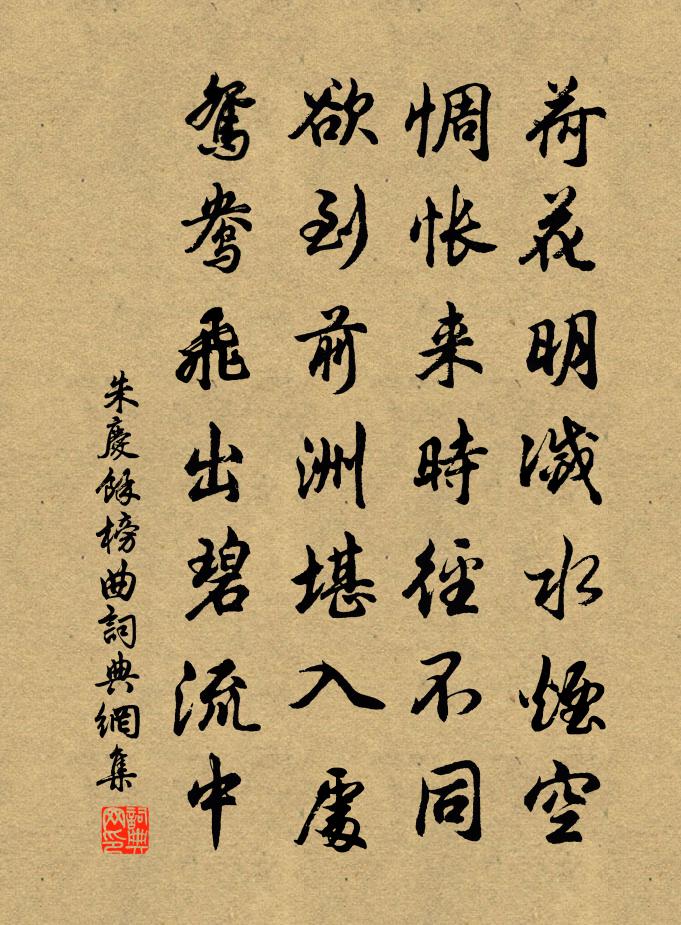 荷花明滅水煙空
惆悵来時徑不同
欲到前洲堪入處
鴛鴦飛出碧流中
朱慶餘榜曲詞典網集
詞典网印